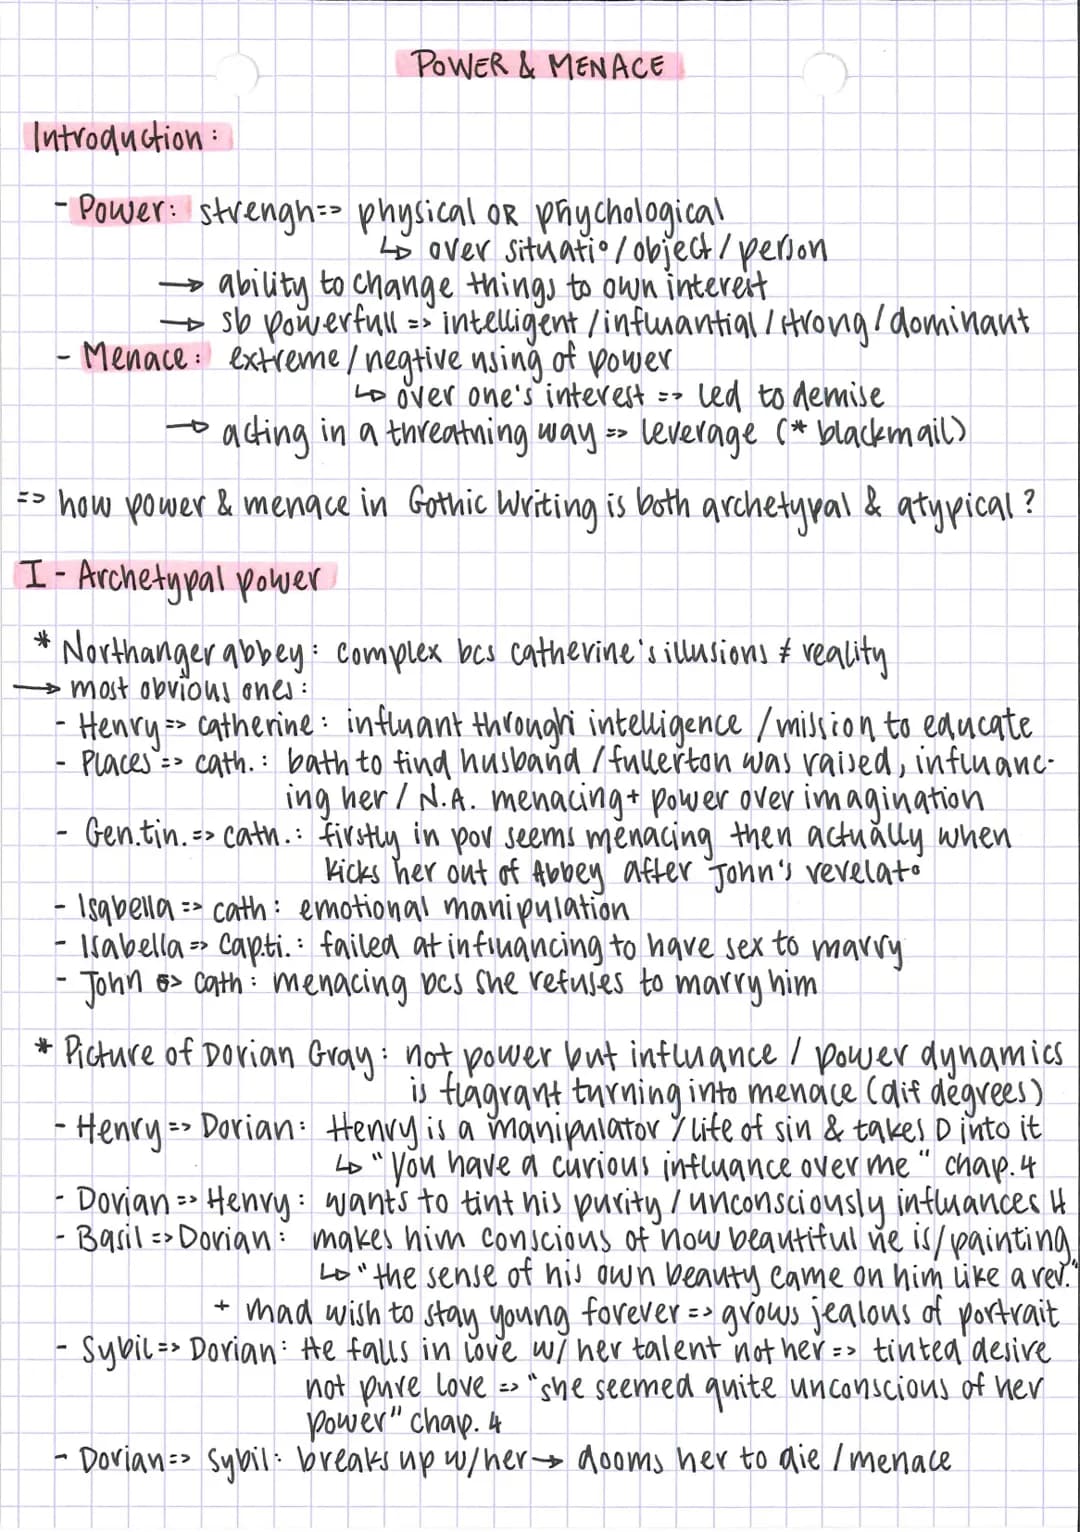 POWER & MENACE
Introduction :
- Power: strengh=> physical OR phychological
↳ over situati° / object / person
→ ability to change things to own interest
→ sb powerfull => intelligent / influantial / strong / dominant
- Menace : extreme / negtive using of power
↳ over one's interest => led to demise
→ acting in a threatning way => leverage (* blackmail)
=> how power & menace in Gothic Writing is both archetypal & atypical ?
I - Archetypal power
* Northanger abbey : complex bcs catherine's illusions ≠ reality
→ most obvious ones :
- Henry => catherine : influant through intelligence / mission to educate
- Places => cath. : bath to find husband / fullerton was raised, influanc-
ing her / N.A. menacing + power over imagination
- Gen.tin. => cath. : firstly in pov seems menacing then actually when
kicks her out of Abbey after John's revelat°
- Isabella => cath : emotional manipulation
- Isabella => Capti. : failed at infuancing to have sex to marry
- John => Cath : menacing bcs she refuses to marry him
* Picture of Dorian Gray : not power but influance / power dynamics
is flagrant turning into menace (dif degrees)
- Henry => Dorian : Henry is a manipulator / life of sin & takes D into it
↳ "You have a curious influance over me" chap. 4
- Dorian => Henry : wants to tint his purity / unconsciously influances H
- Basil => Dorian : makes him conscious of how beautiful he is / painting
↳ "the sense of his own beauty came on him like a rev."
+ mad wish to stay young forever => grows jealous of portrait
- Sybil => Dorian : He falls in love w/ her talent not her => tinted desire
not pure love => "she seemed quite unconscious of her
power" chap. 4
- Dorian => Sybil : breaks up w/her → dooms her to die / menace